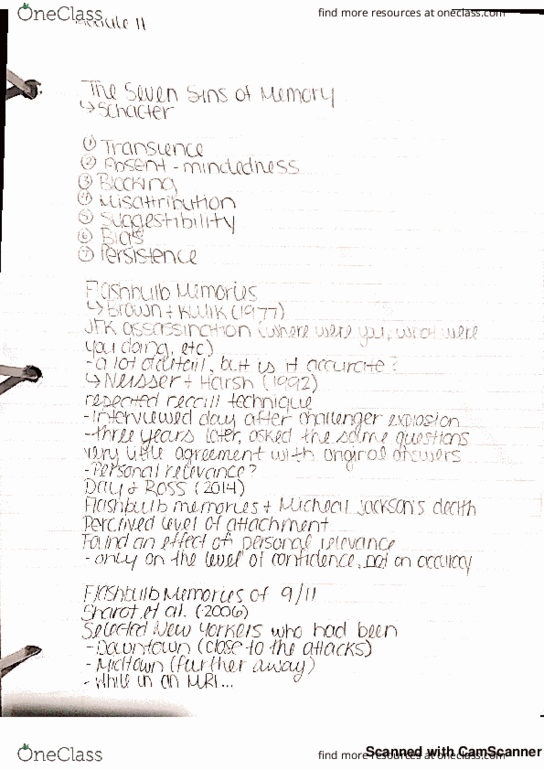 OneClass
find more resources at oneclass.com
Module 11
The Seven Sins of Memory
↳ Schacter
① Transience
② Absent-mindedness
③ Blocking
④ Misattribution
⑤ Suggestibility
⑥ Bias
⑦ Persistence
Flashbulb Memories
↳ Brown + Kulik (1977)
JFK assassination (where were you, what were
you doing, etc)
- a lot of detail, but is it accurate?
↳ Neisser + Harsh (1992)
repeated recall technique
- Interviewed day after challenger explosion
- three years later, asked the same questions
very little agreement with original answers
- Personal relevance?
Day & Ross (2014)
Flashbulb memories + Micheal Jackson's death
Perceived level of attachment
Found an effect of personal relevance
- only on the level of confidence, not on accuracy
Flashbulb Memories of 9/11
Sharot et al. (2006)
Selected New Yorkers who had been
- Downtown (close to the attacks)
- Midtown (further away)
- While in an MRI...
OneClass
find more resources at oneclass.com
Scanned with CamScanner